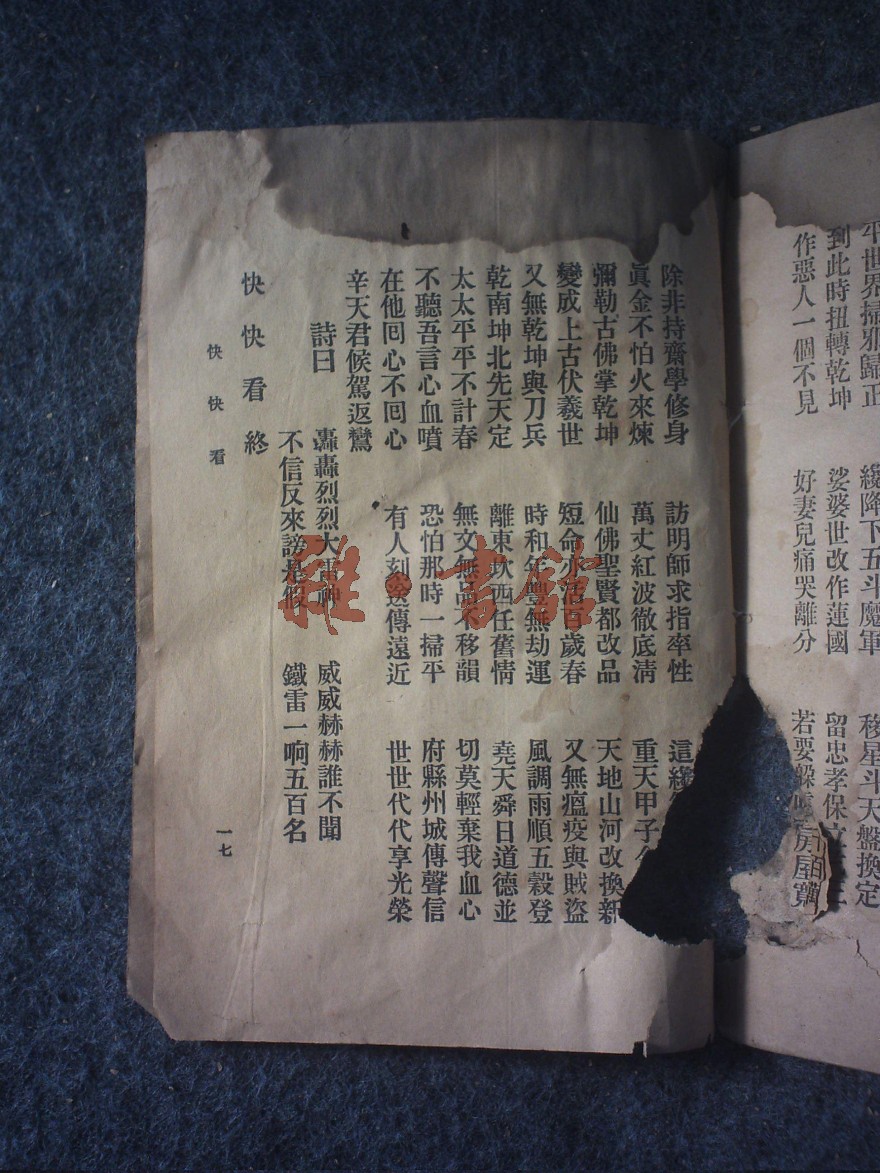 平世界掃邪歸正 纔降下五斗魔軍 移星斗天盤換定
到此時扭轉乾坤 娑婆世改作蓮國 留忠孝保
作惡人一個不見 好妻兒痛哭離分 若要躲 房屋
除非持齋學修身 訪明師求指率性 這纔
眞金不怕火來煉 萬丈紅波徹底淸 重天甲子
彌勒古佛掌乾坤 仙佛聖賢都改品 天地山河改換新
變成上古伏羲世 短命亦活百歲春 又無瘟疫與賊盜
又無乾坤與刀兵 時和年豐無劫運 風調雨順五穀登
乾南坤北先天定 離東坎西任舊情 堯天舜日道德並
太太平平不計春 無文無品不移韻 切莫輕棄我血心
不聽吾言心血噴 恐怕那時一掃平 府縣州城傳聲信
在他囘心不囘心 有人刻送傳遠近 世世代代享光榮
辛天君候駕返鸞
詩曰 轟轟烈烈大雷神 威威赫赫誰不聞
不信反來謗是假 鐵雷一响五百名
快快看終
快快看 一七
雜·書館